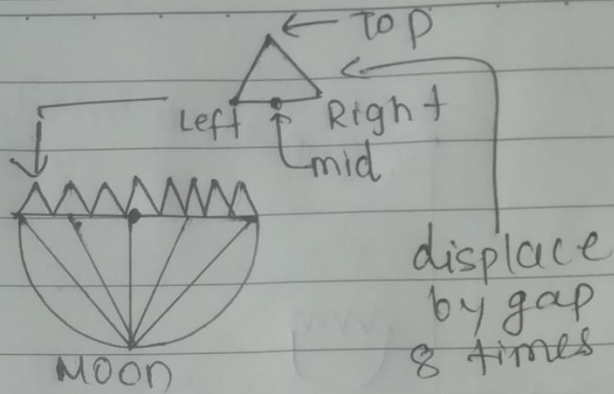 Top
Left
Right
mid
displace
by gap
8 times
Moon